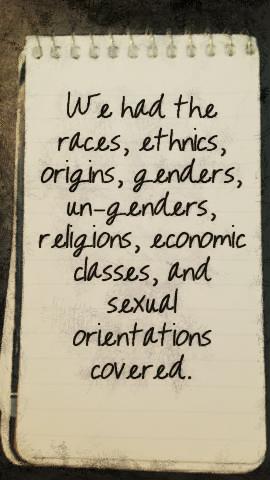 We had the
races, ethnics,
origins, genders,
un-genders,
religions, economic
classes, and
sexual
orientations
covered.